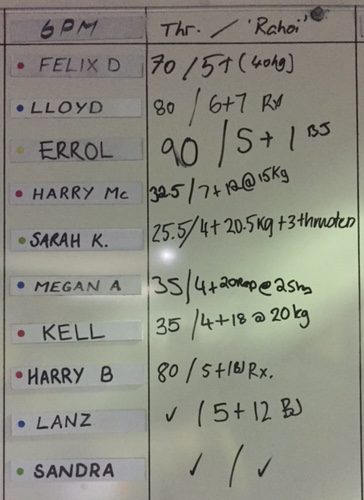 6PM Thr. / 'Rahoi'
FELIX D 70 / 5+ (40kg)
LLOYD 80 / 6+7 Rx
ERROL 90 / 5 + 1 BJ
HARRY Mc 32.5 / 7+12@15kg
SARAH K. 25.5/4+20.5kg+3thruster
MEGAN A 35/4+20rep@25kg
KELL 35 /4+18@20kg
HARRY B 80 / 5+ Rx.
LANZ ✓ / 5+12 BJ
SANDRA ✓ / ✓